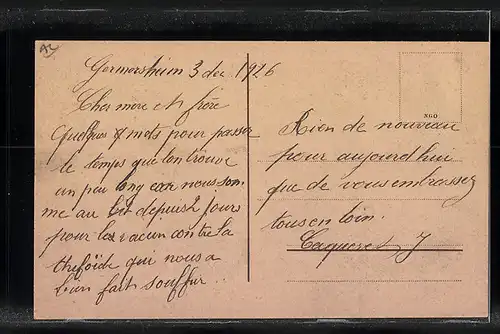 Germersheim 3 dec 1926
Cher mere et frère
Quelques mots pour passer
le temps que lon trouve
un peu long car nous som
me au lit depuis 2 jours
pour le vacin contre la
thifoide qui nous a
bien fait souffrir.
NGO
Rien de nouveau
pour aujourd'hui
que de vous embrassez
tous en loin.
J